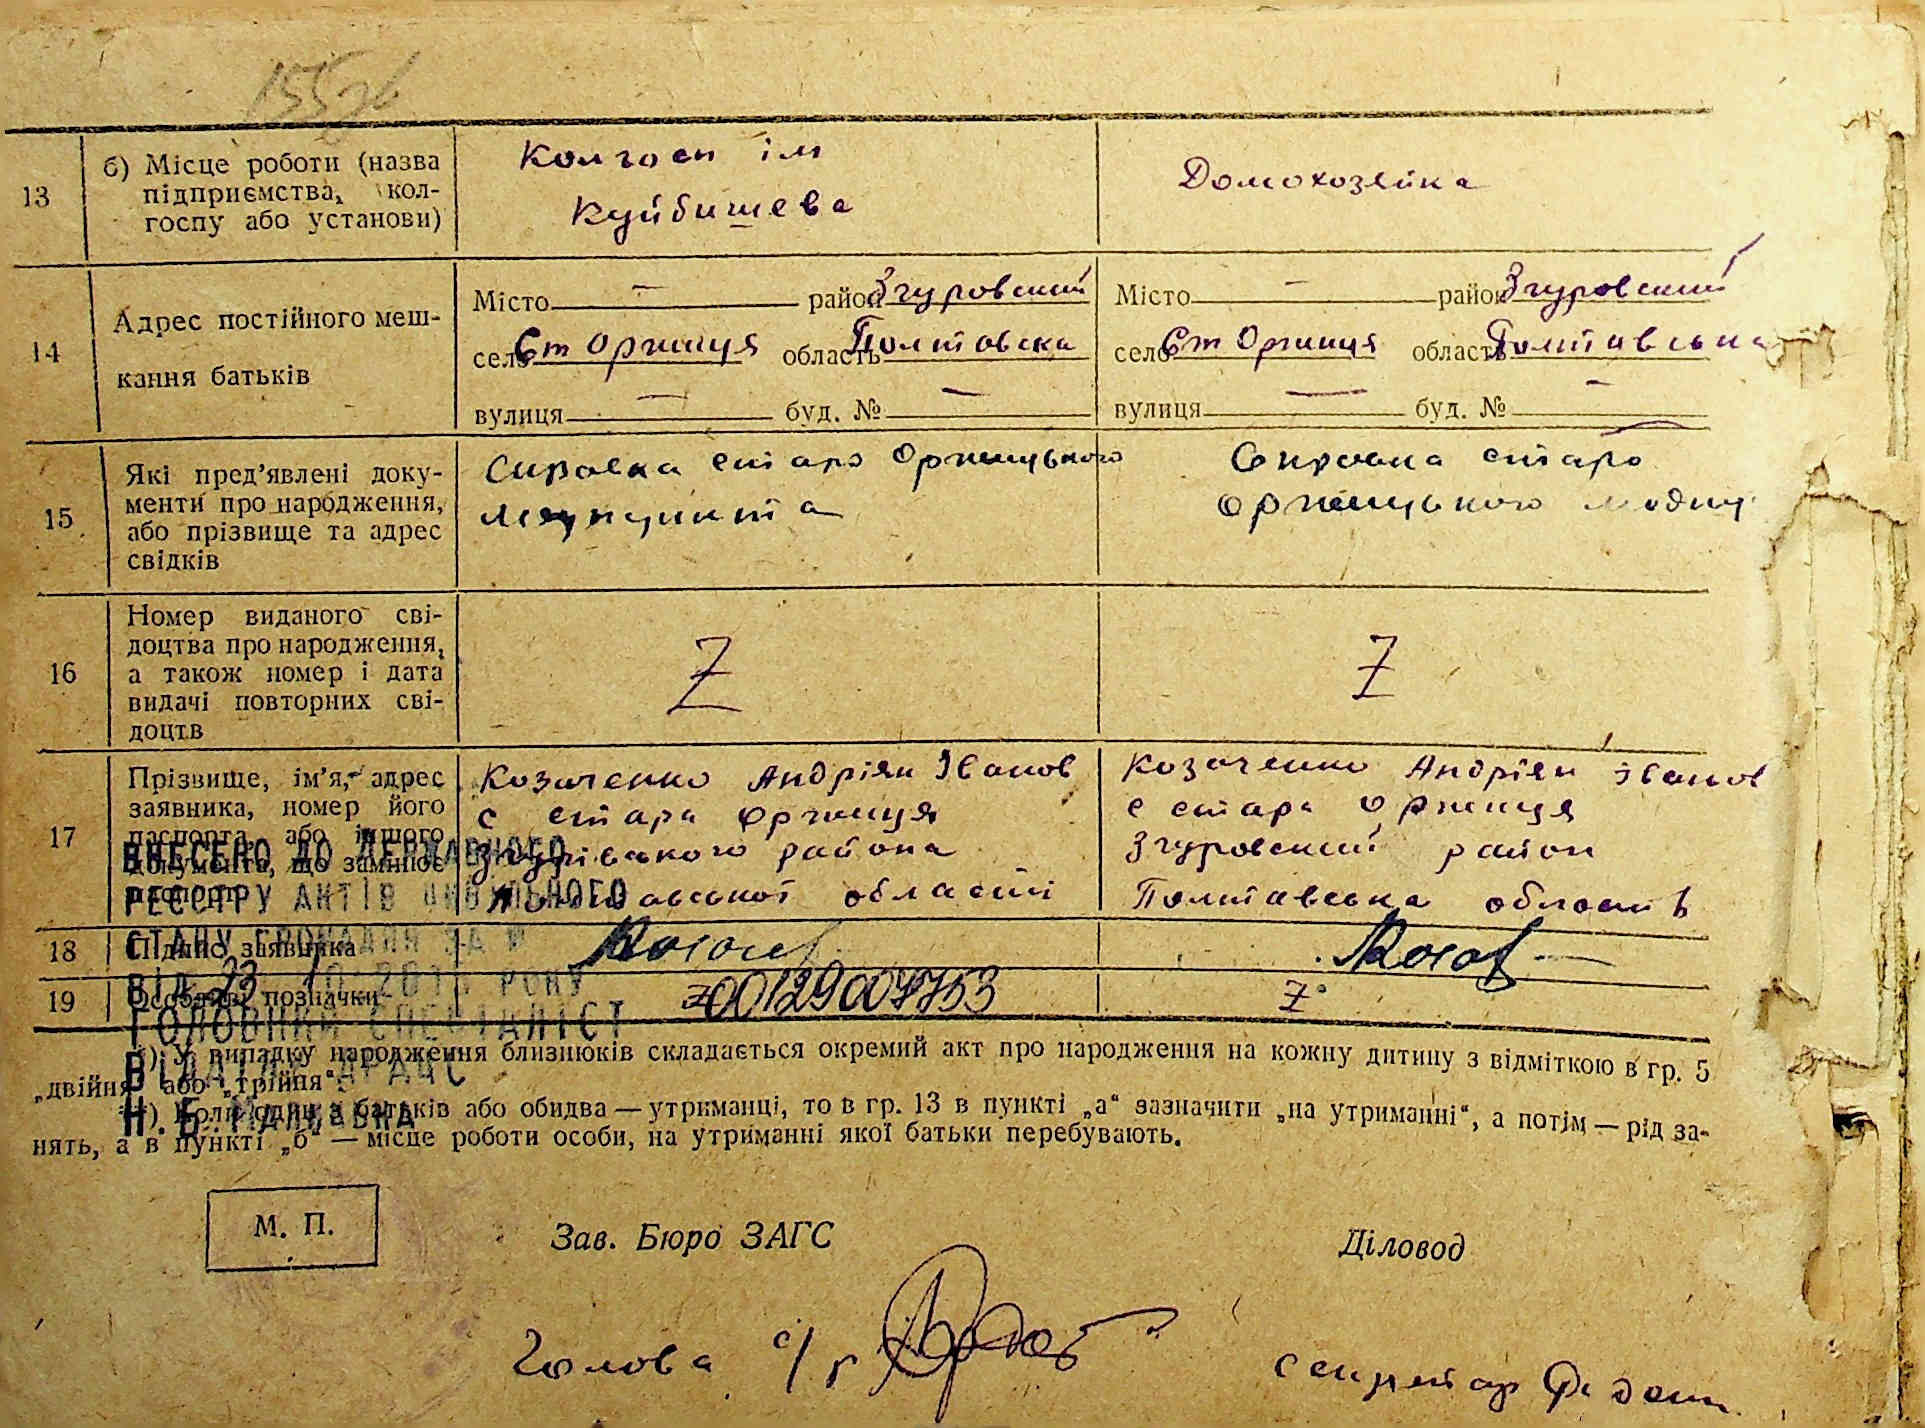 13
б) Місце роботи (назва
підприємства, кол-
госпу або установи)
Колгосп ім
Куйбишева
Домохозяйка
14
Адрес постійного меш-
кання батьків
Місто — район Згуровский
село Ст Оржиця область Полтавска
вулиця — буд. № —
Місто — район Згуровский
село Ст Оржиця область Полтавська
вулиця — буд. № —
15
Які пред'явлені доку-
менти про народження,
або прізвище та адрес
свідків
Справка старо Оржицького
медпункта
Справка старо
Оржицького медпу
16
Номер виданого сві-
доцтва про народження,
а також номер і дата
видачі повторних сві-
доцтв
Z
Z
17
Прізвище, ім'я, адрес
заявника, номер його
паспорта, або іншого
документа, що замінює
паспорт
Козаченко Андріян Іванов
с стара Оржиця
Згурівського района
Полтавської області
Козаченко Андріян Іванов
с стара Оржиця
Згуровский район
Полтавська область
18
Підпис заявника
19
Особливі позначки
00129007753
Z
ВНЕСЕНО ДО ДЕРЖАВНОГО
РЕЄСТРУ АКТІВ ЦИВІЛЬНОГО
СТАНУ ГРОМАДЯН ЗА №
ВІД 23 10 РОКУ
ГОЛОВНИЙ СПЕЦІАЛІСТ
ВІДДІЛУ ДРАЦС
Н. Б.
*) У випадку народження близнюків складається окремий акт про народження на кожну дитину з відміткою в гр. 5
„двійня" або „трійня".
**) Коли один з батьків або обидва — утриманці, то в гр. 13 в пункті „а" зазначити „на утриманні", а потім — рід за-
нять, а в пункті „б" — місце роботи особи, на утриманні якої батьки перебувають.
М. П.
Зав. Бюро ЗАГС
Діловод
Голова с/р
секретар